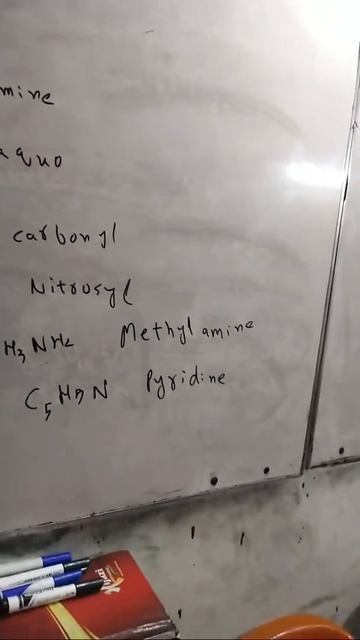 mine
aquo
carbonyl
Nitrosyl
H3NH2 Methylamine
C5H5N Pyridine